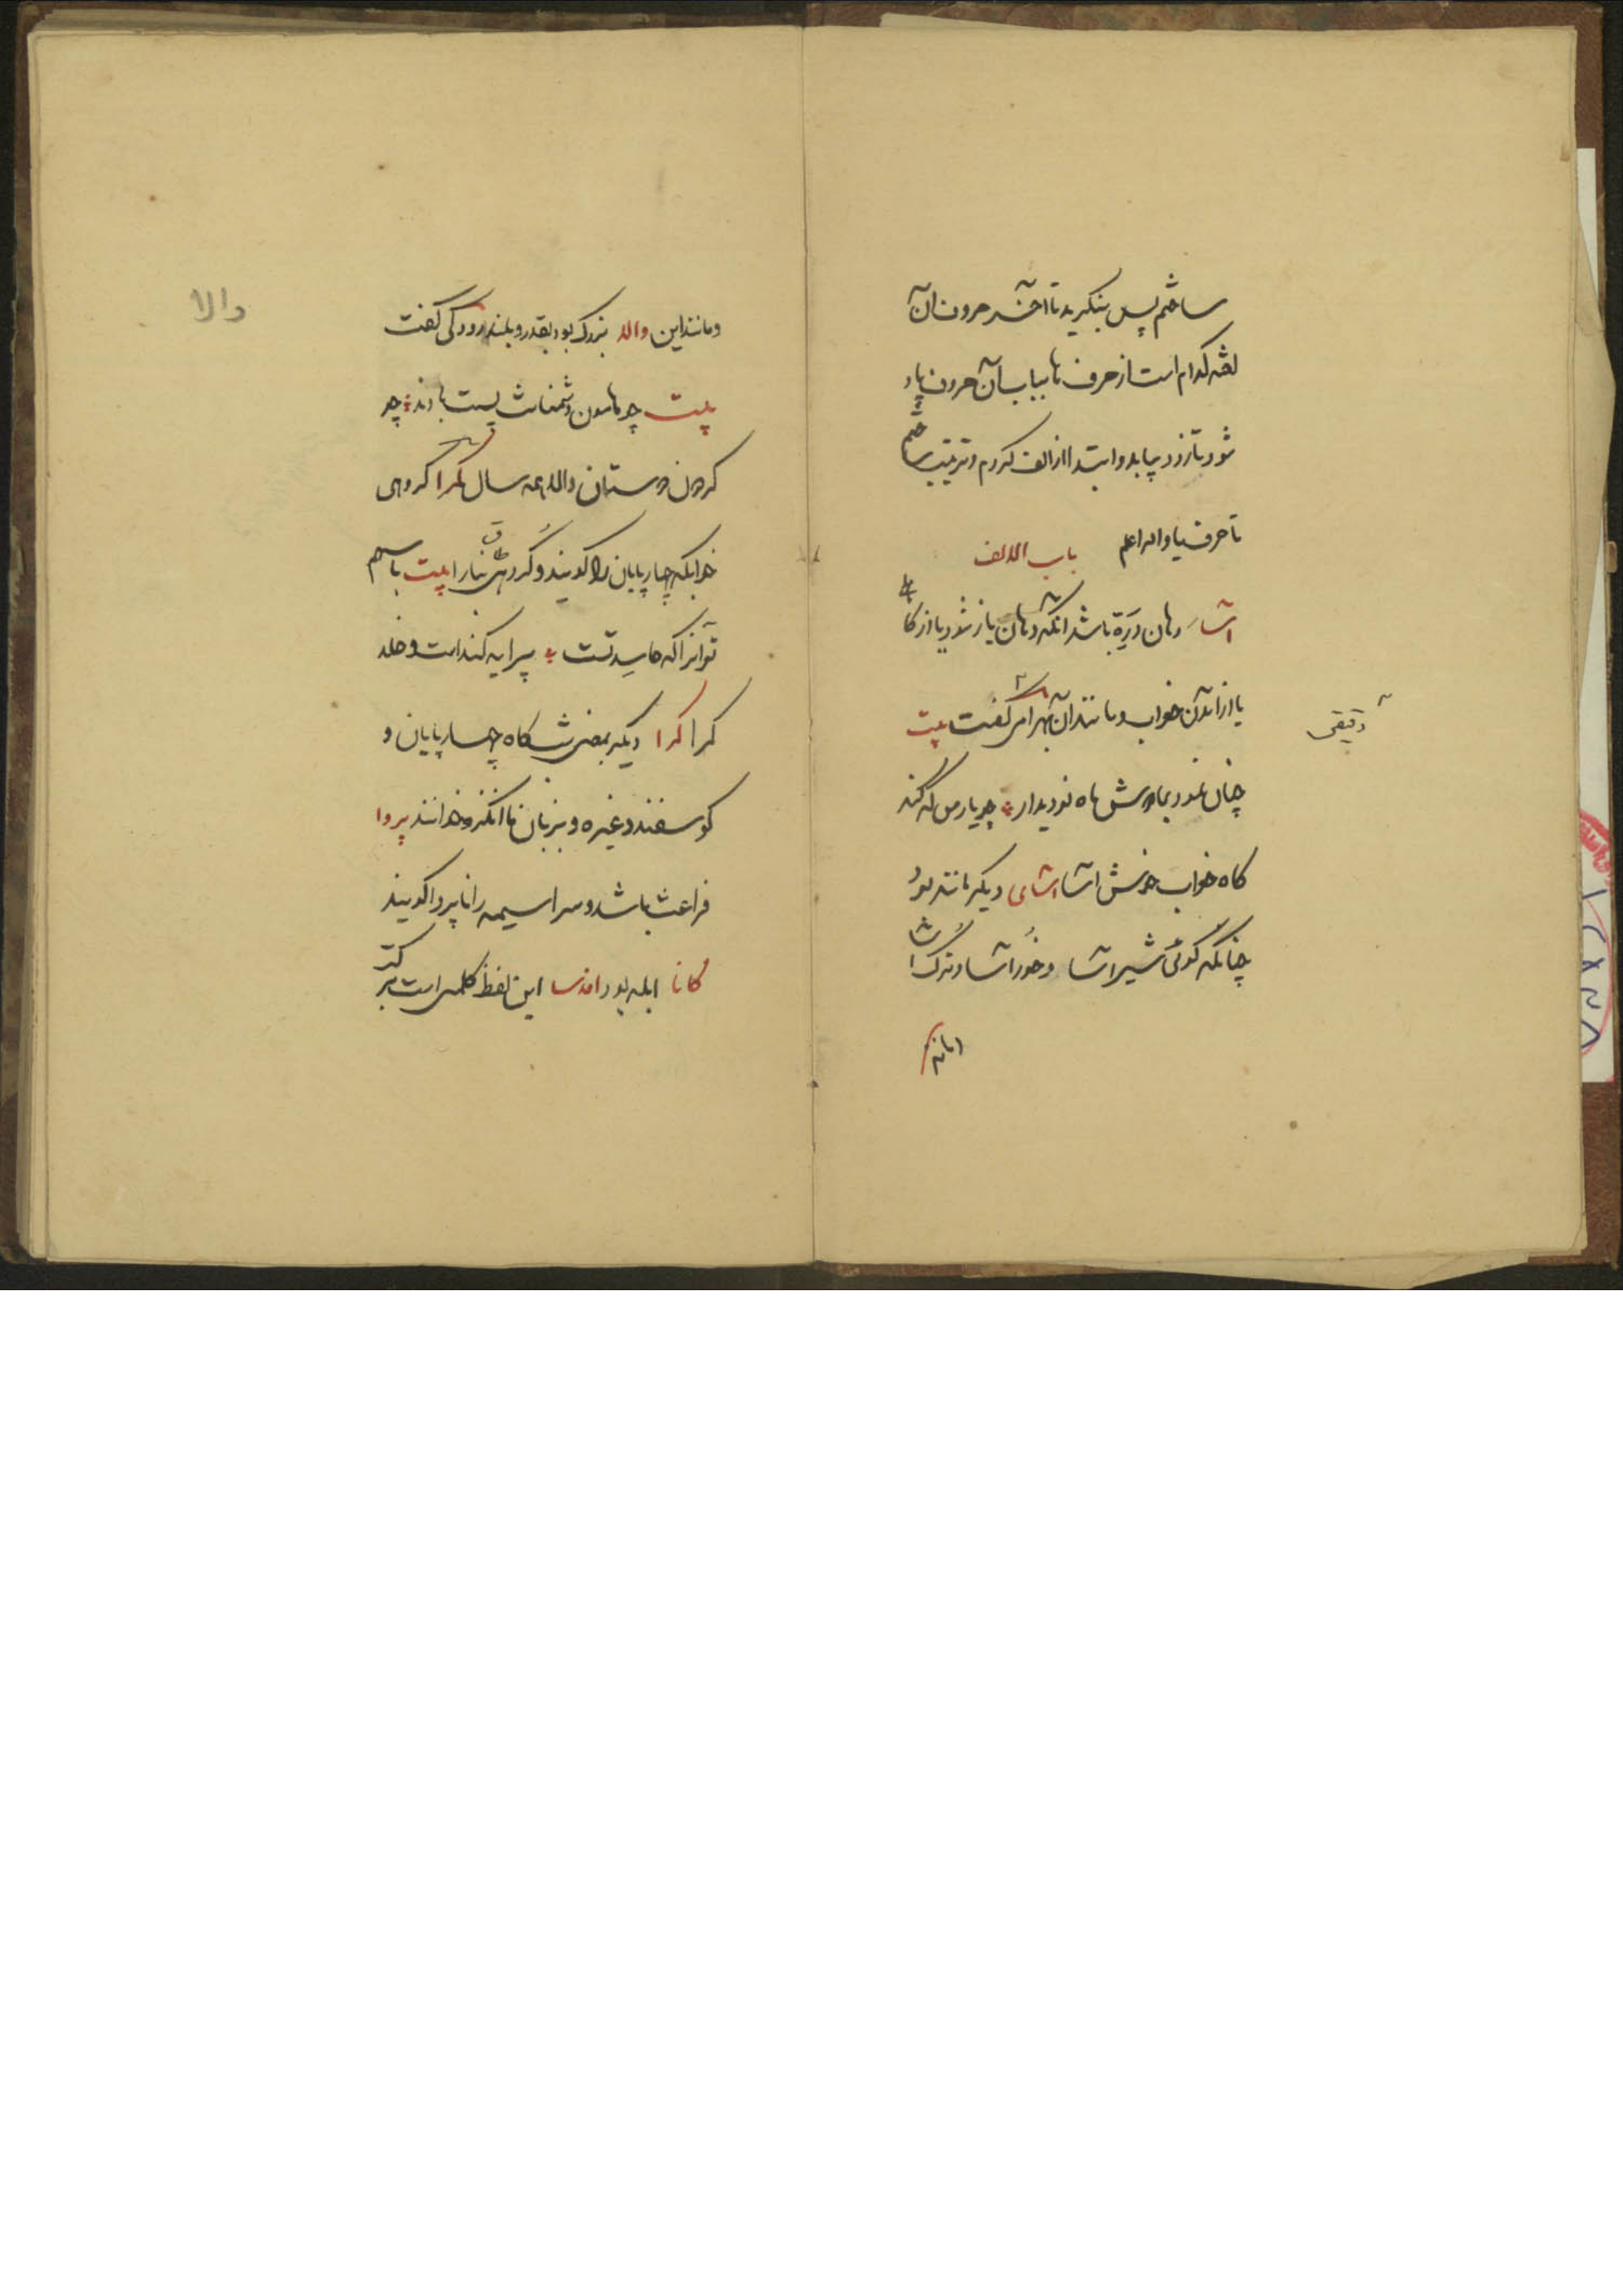 ساختم پس بنگرید تا آخر حروف آن
لغة کدام است از حرف ها بباب آن حروف یاد
شود تا زود بیابد و ابتدا از الف کردم و ترتیب ساختم
تا حرف یا والله اعلم باب الالف
آسا دهان دره باشد آنکه دهان باز شود یا از کا
یا از آمدن خواب و مانند آن بهرامی گفت بیت
دقیقی
چنان نمود بما دوش ماه نو دیدار چو یار من که کند
گاه خواب خوش آسا آسای دیگر مانند بود
چنانکه گوئی شیر آسا و خور آسا و ترک آسا
و مانند
و مانند این والا بزرگ بود بقدر و بلند رودکی گفت
والا
بیت چو هامون دشمنانت پست بادند چو
گردون دوستان والا همه سال کرا گروهی
خوابگه چارپایان را گویند و گروهی بنا را بیت باسم
تو آنرا که حاسد تست پیرایه کندست و خلد
کرا کرا دیگر بمعنی شبگاه چهارپایان و
گوسفند و غیره و بزبان ما انگژ خوانند پروا
فراغت باشد و سراسیمه را ناپروا گویند
کانا ابله بود افدسا این لفظ کلمه است